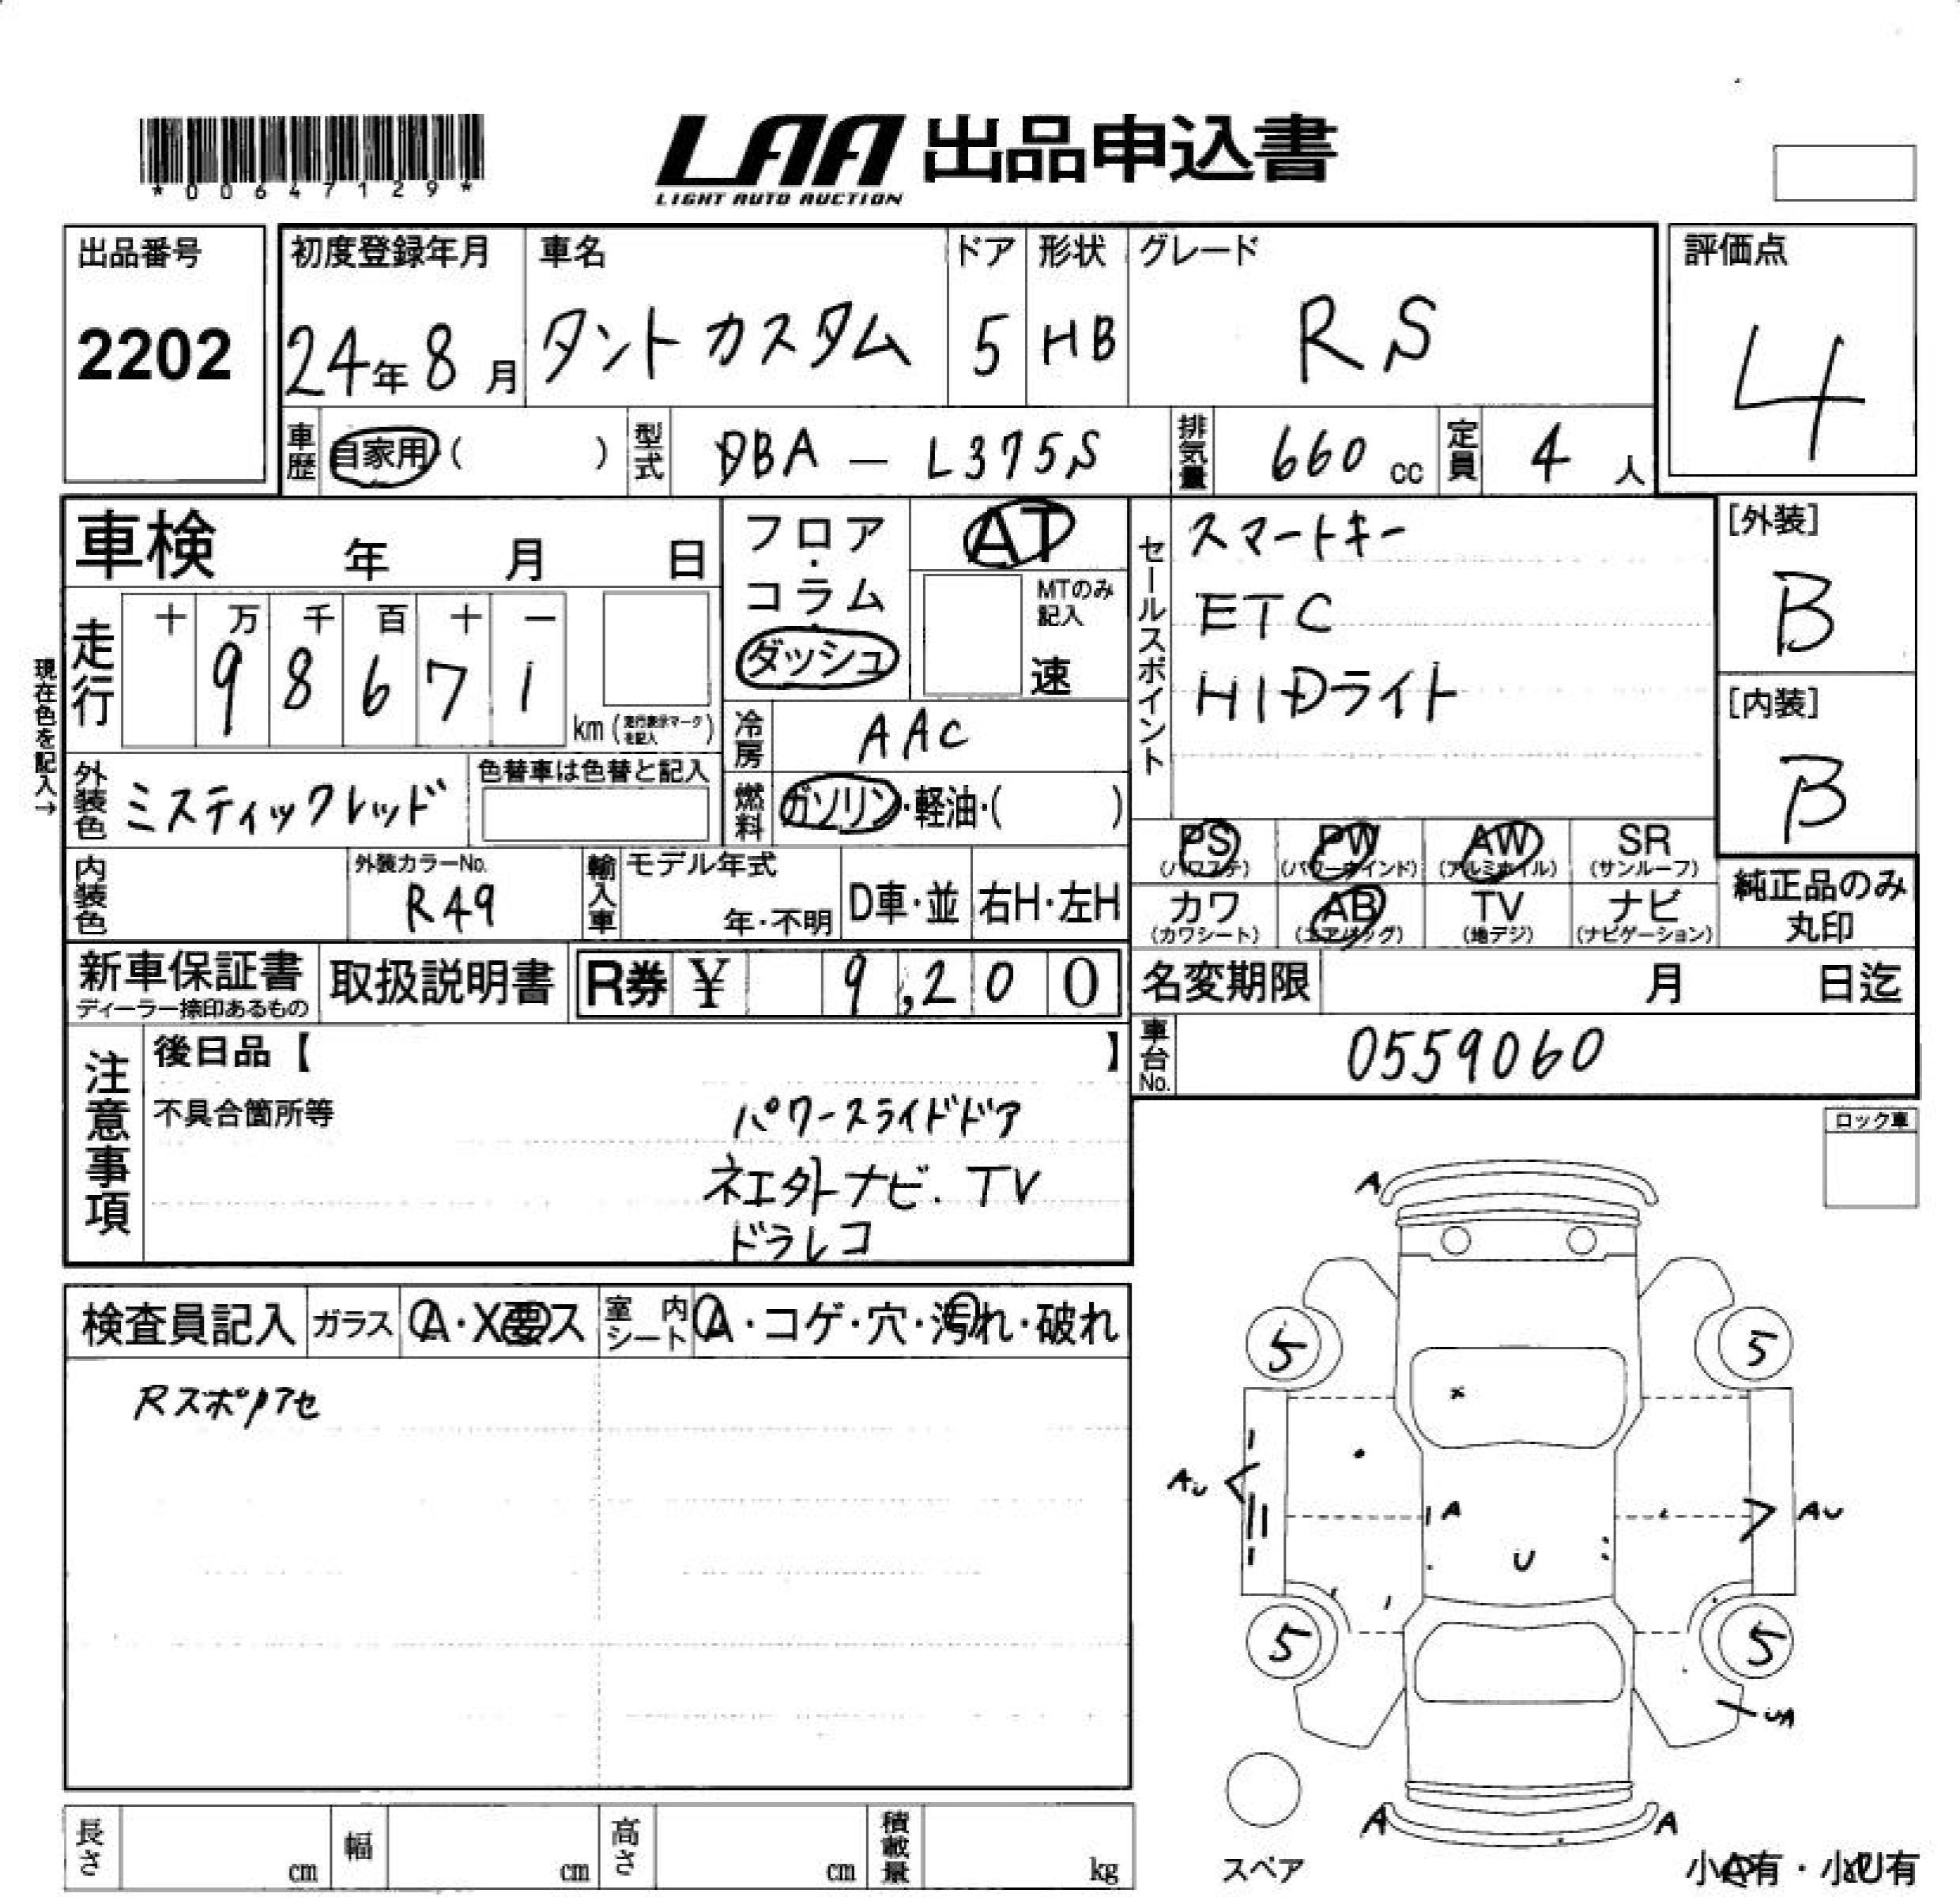 *00647129*
LAA 出品申込書
LIGHT AUTO AUCTION
出品番号
2202
初度登録年月
24年8月
車名
タントカスタム
ドア
5
形状
HB
グレード
RS
評価点
4
車歴
自家用( )
型式
DBA - L375S
排気量
660 cc
定員
4 人
車検 年 月 日
フロア・
コラム・
ダッシュ
AT
MTのみ
記入
速
セールスポイント
スマートキー
ETC
HIDライト
[外装]
B
[内装]
B
現在色を記入→
走行
十 万 千 百 十 一
9 8 6 7 1
km(走行表示マークを記入)
冷房
AAC
外装色
ミスティックレッド
色替車は色替と記入
燃料
ガソリン・軽油・( )
内装色
外装カラーNo.
R49
輸入車
モデル年式
年・不明
D車・並
右H・左H
PS
(パワステ)
PW
(パワーウインド)
AW
(アルミホイル)
SR
(サンルーフ)
カワ
(カワシート)
AB
(エアバッグ)
TV
(地デジ)
ナビ
(ナビゲーション)
純正品のみ
丸印
新車保証書
ディーラー捺印あるもの
取扱説明書
R券 ¥ 9,200
名変期限 月 日迄
車台No.
0559060
注意事項
後日品【 】
不具合箇所等
パワースライドドア
ネエ外ナビ.TV
ドラレコ
ロック車
検査員記入
ガラス
A・X要ス
室内
シート
A・コゲ・穴・汚れ・破れ
Rスポイアセ
A
5 5
x
AU
A
AU
U
5 5
UA
A A
スペア
小A有・小U有
長さ cm
幅 cm
高さ cm
積載量 kg